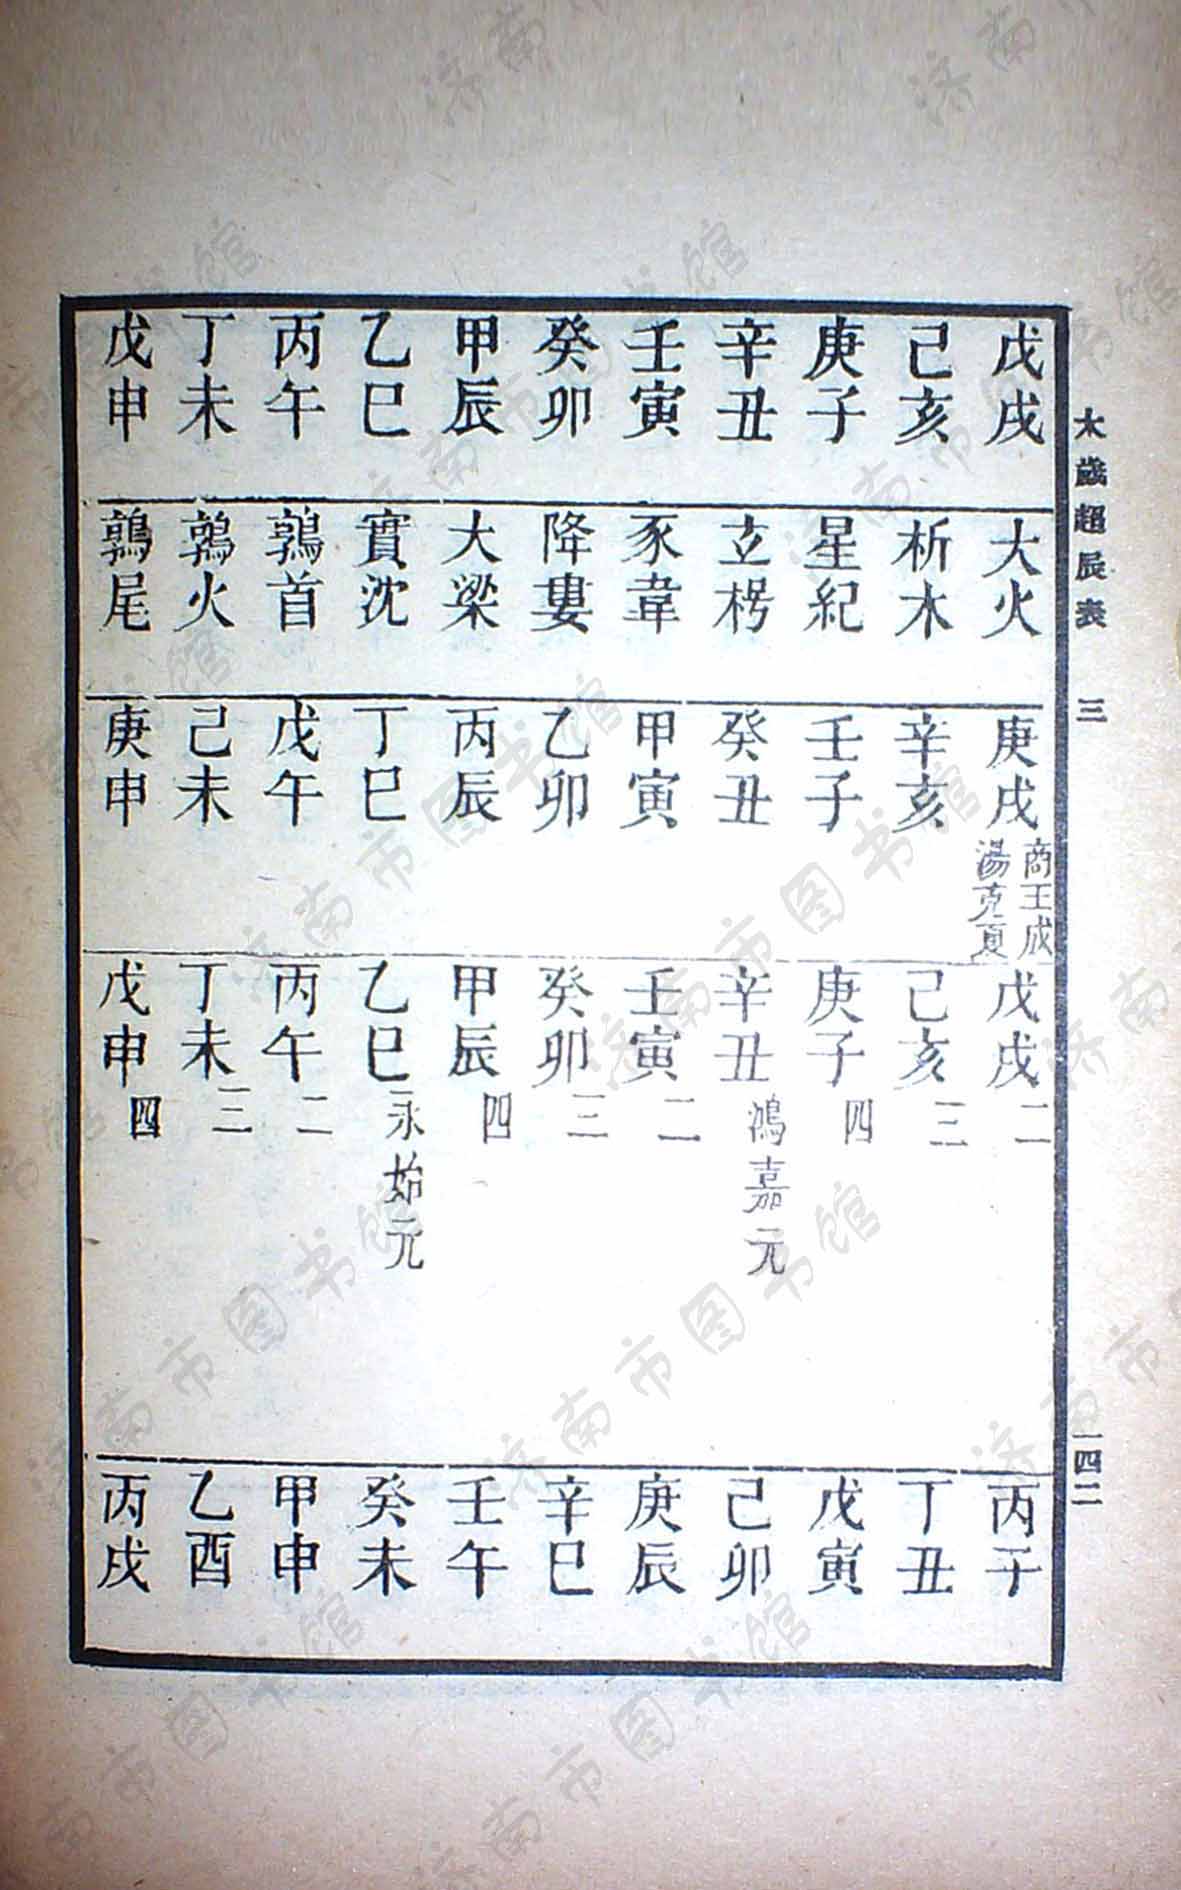 太歲超辰表 三 一四二
戊戌 大火 庚戌 商王成湯克夏 戊戌 二 丙子
己亥 析木 辛亥 己亥 三 丁丑
庚子 星紀 壬子 庚子 四 戊寅
辛丑 玄枵 癸丑 辛丑 鴻嘉元 己卯
壬寅 豕韋 甲寅 壬寅 二 庚辰
癸卯 降婁 乙卯 癸卯 三 辛巳
甲辰 大梁 丙辰 甲辰 四 壬午
乙巳 實沈 丁巳 乙巳 永始元 癸未
丙午 鶉首 戊午 丙午 二 甲申
丁未 鶉火 己未 丁未 三 乙酉
戊申 鶉尾 庚申 戊申 四 丙戌
济南市图书馆